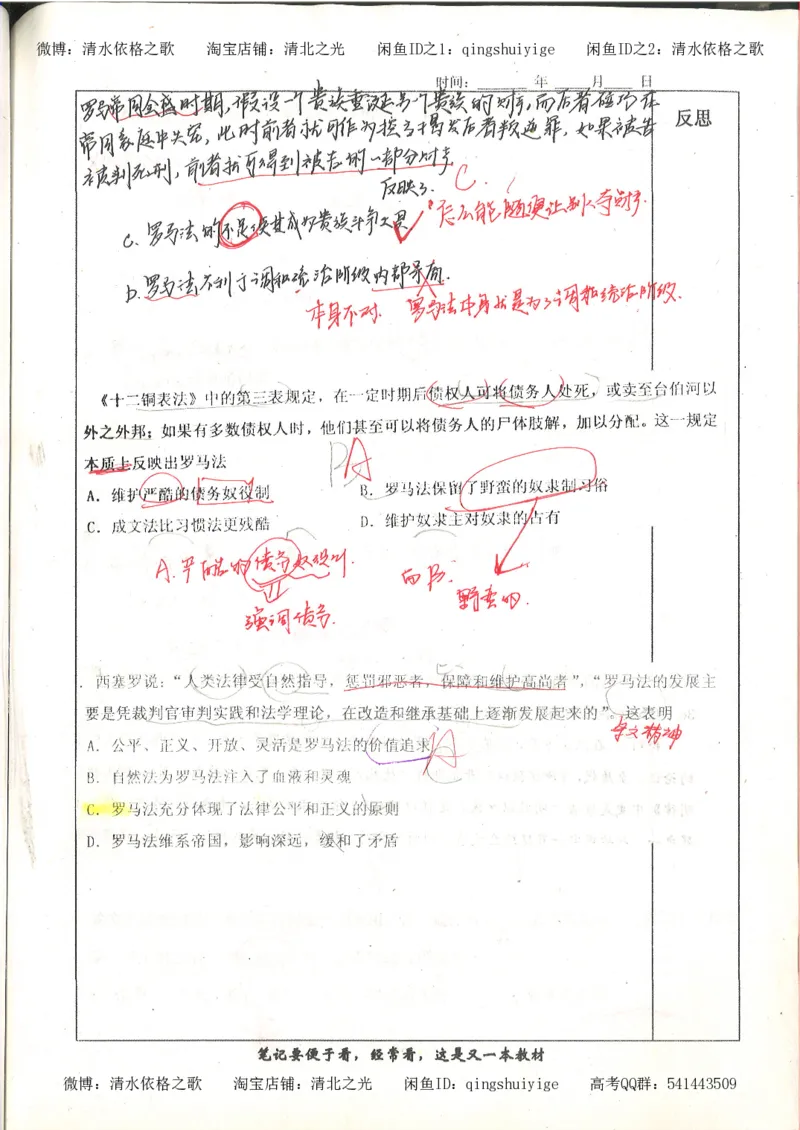 微博：清水依格之歌 淘宝店铺：清北之光 闲鱼ID之1：qingshuiyige 闲鱼ID之2：清水依格之歌
时间： 年 月 日
反思
罗马帝国全盛时期，假设一个贵族垂涎另一个贵族的财产，而后者碰巧在
帝国家庭中失宠，此时前者就可作为控方揭发后者叛逆罪，如果被告
被判死刑，前者折可得到被告的一部分财产
反映了 C
C. 罗马法的不足使其成为贵族斗争工具
怎么能随便让别人夺财产.
b. 罗马法不利于调和统治阶级内部矛盾.
本身不对. 罗马法本身就是为了调和统治阶级.
《十二铜表法》中的第三表规定，在一定时期后债权人可将债务人处死，或卖至台伯河以
外之外邦；如果有多数债权人时，他们甚至可以将债务人的尸体肢解，加以分配。这一规定
本质上反映出罗马法
A
A．维护严酷的债务奴役制 B．罗马法保留了野蛮的奴隶制习俗
C．成文法比习惯法更残酷 D．维护奴隶主对奴隶的占有
A. 严酷的债务奴役制. 而B:
野蛮的.
强调债务.
．西塞罗说：“人类法律受自然指导，惩罚邪恶者，保障和维护高尚者”，“罗马法的发展主
要是凭裁判官审判实践和法学理论，在改造和继承基础上逐渐发展起来的”。这表明
A．公平、正义、开放、灵活是罗马法的价值追求
A
B．自然法为罗马法注入了血液和灵魂
C．罗马法充分体现了法律公平和正义的原则
D．罗马法维系帝国，影响深远，缓和了矛盾
笔记要便于看，经常看，这是又一本教材
微博：清水依格之歌 淘宝店铺：清北之光 闲鱼ID：qingshuiyige 高考QQ群：541443509